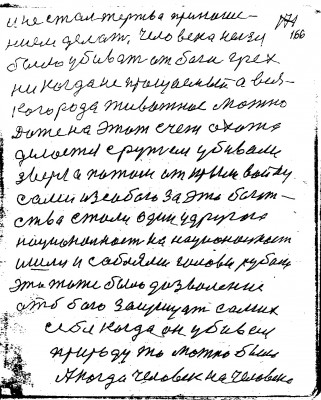 и не стал жертва приноше-
нием делат, человека нелзя 166
было убиват от бога грех
никогда не прощаемый а вся-
кого рода животное можно
даже на этот счет охота
делается с ружем убивали
зверя а потом открыли войну
сами из собою за это богат-
ства стали один у другого
националност на националност
и шли и саблями головы рубали
это тоже было дозволение
от бога защищат самих
себя когда он убивал
природу то можно было
А когда человек на человека